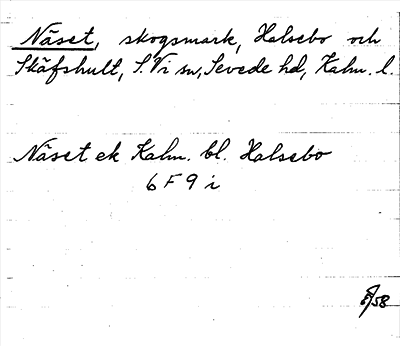 Näset, skogsmark, Halsebo och
Skäfshult, S. Vi sn, Sevede hd, Kalm. l.
Näset ek Kalm. bl. Halsebo
6 F 9 i
58